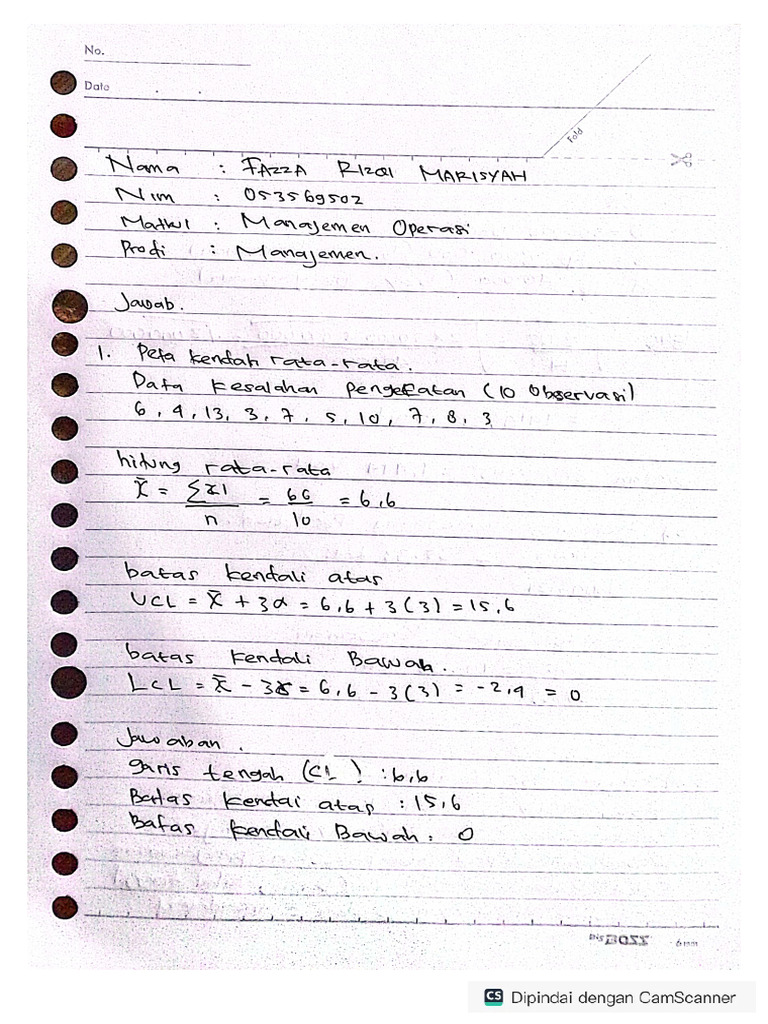 No.
Date
Fold
Nama : FAZZA RIZQI MARISYAH
Nim : 053569502
Matkul : Manajemen Operasi
Prodi : Manajemen.
Jawab.
1. Peta kendali rata-rata.
Data kesalahan pengepatan (10 Observasi)
6, 4, 13, 3, 7, 5, 10, 7, 8, 3
hitung rata-rata
X̄ = Σx1 / n = 66 / 10 = 6,6
batas kendali atas
UCL = X̄ + 3α = 6,6 + 3(3) = 15,6
batas kendali Bawah.
LCL = X̄ - 38 = 6,6 - 3(3) = -2,4 = 0
Jawaban.
garis tengah (CL) : 6,6
Batas kendai atas : 15,6
Batas kendali Bawah : 0
BOSS 6mm
CS Dipindai dengan CamScanner